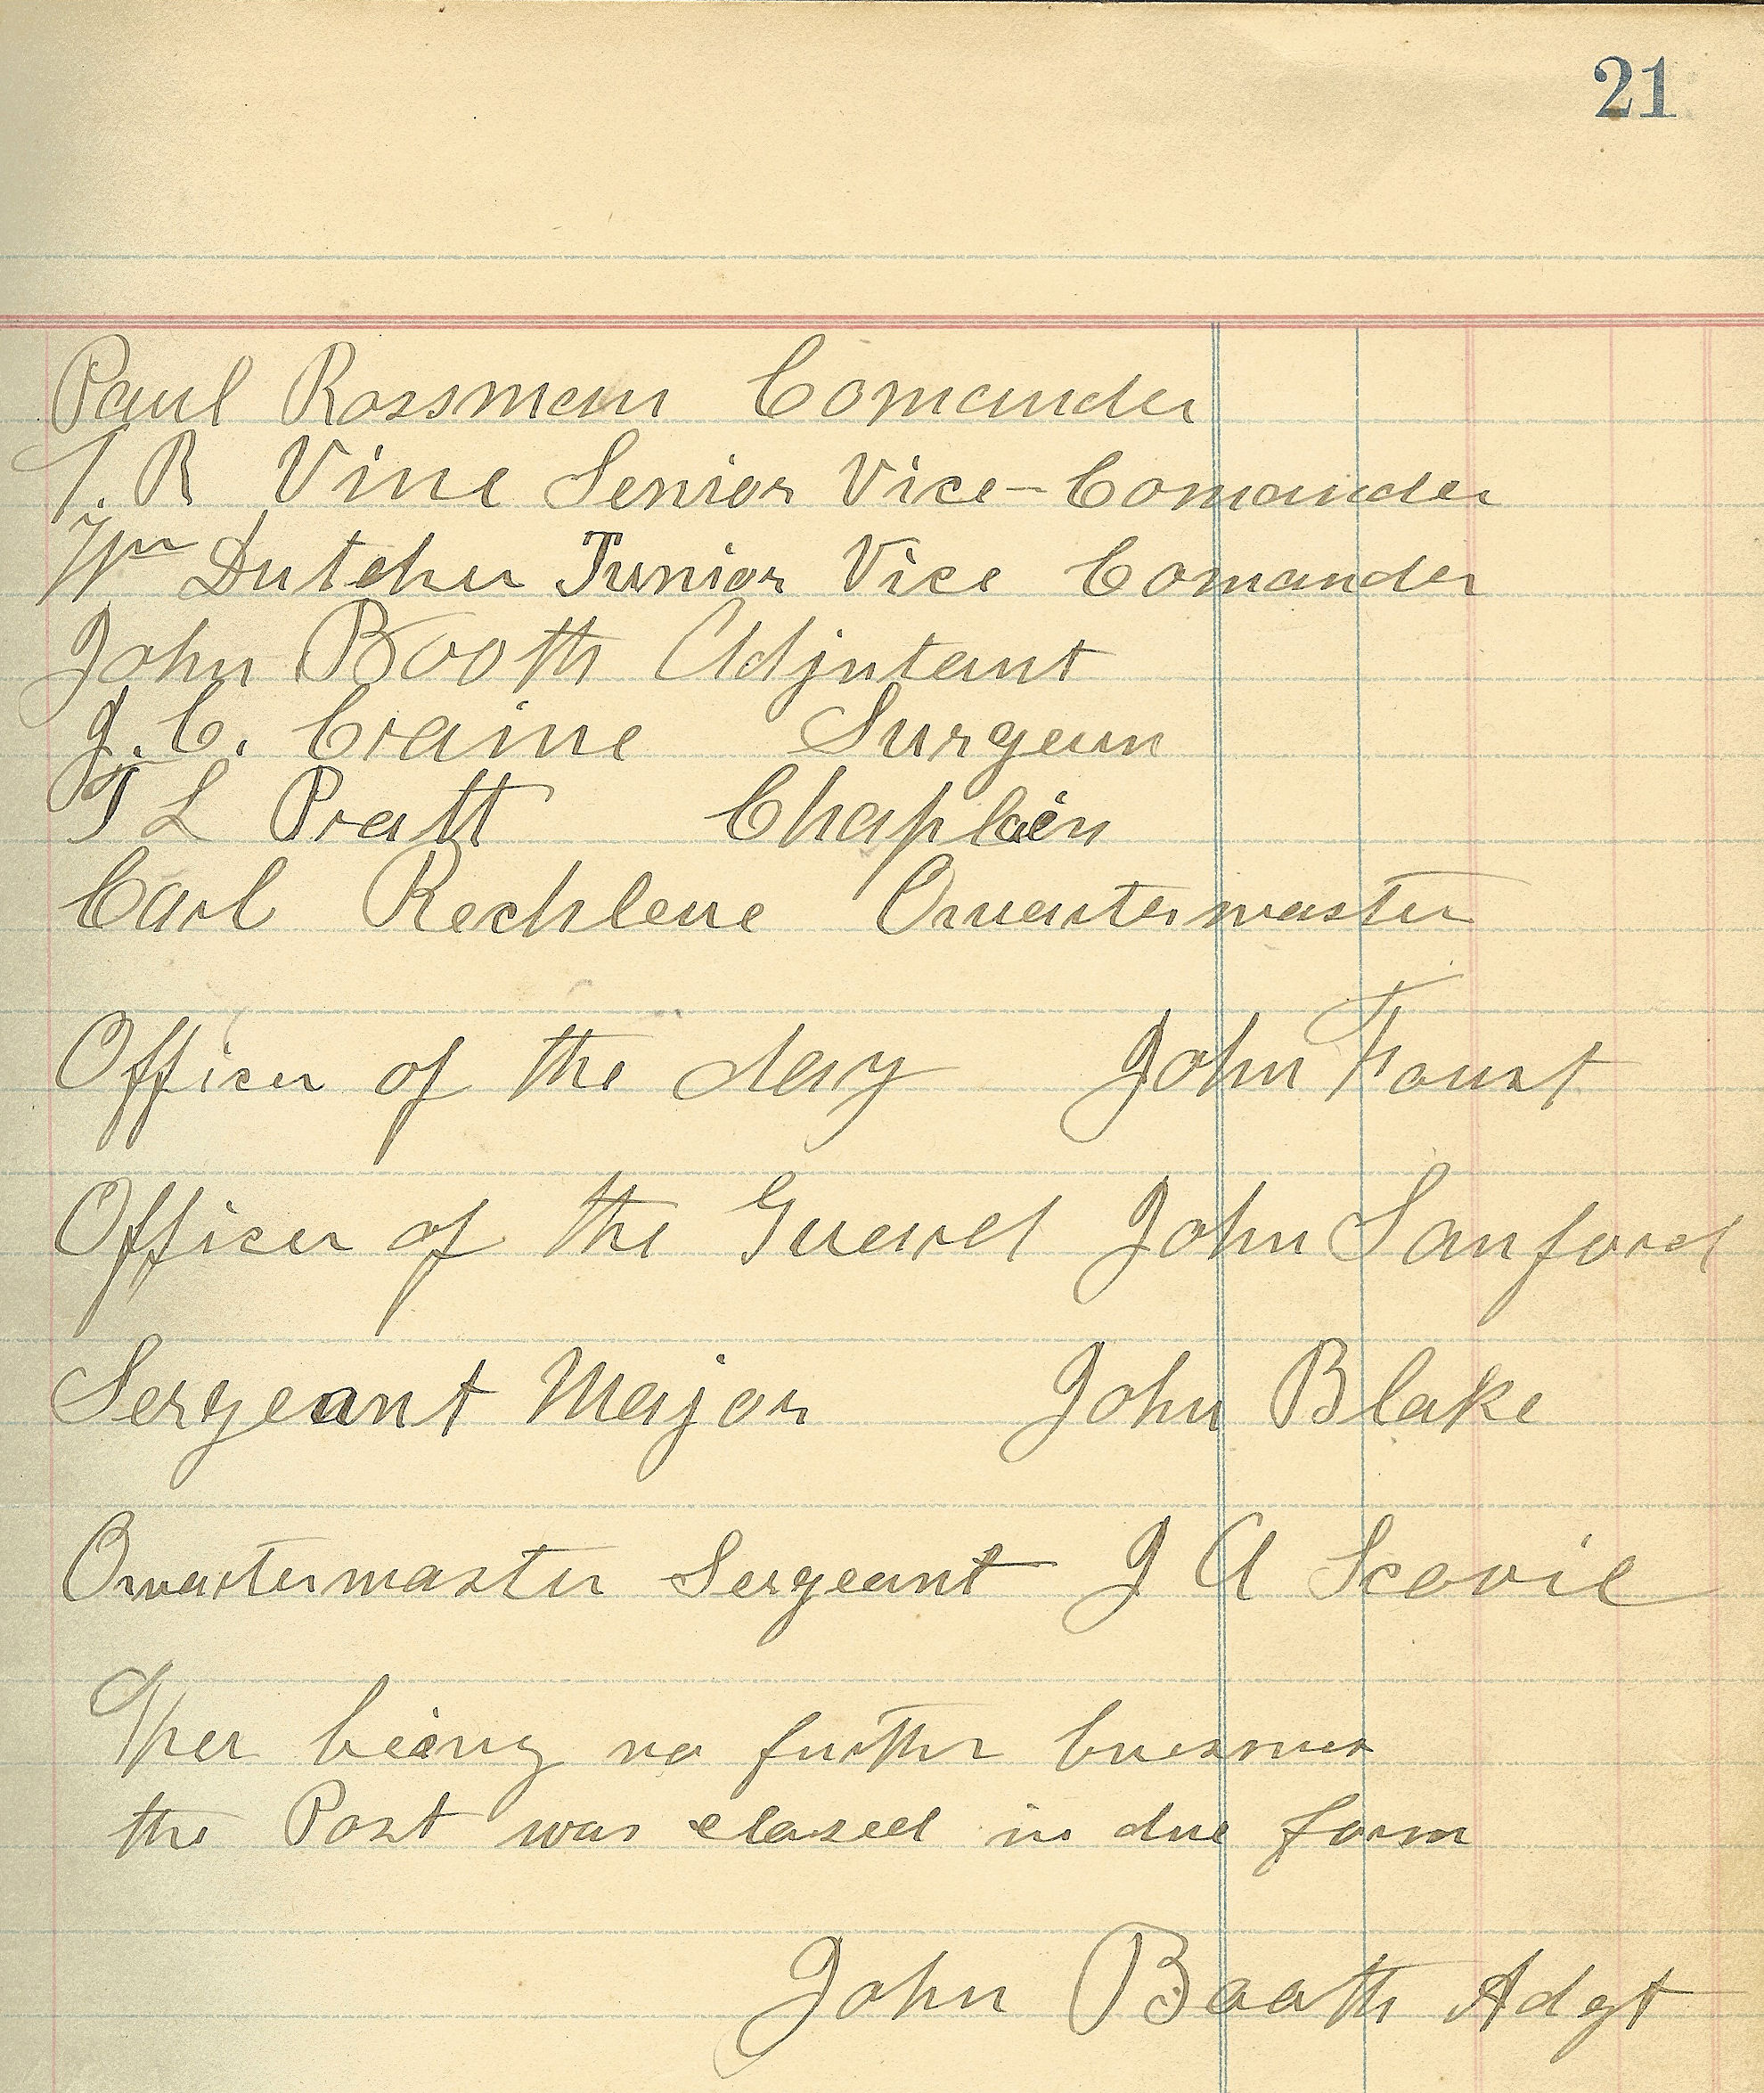 21
Paul Rossman Comander
T. R Vine Senior Vice-Comander
Wm Dutcher Junior Vice Comander
John Booth Adjutant
J. C. Craine Surgeon
T L Pratt Chaplain
Carl Rechlene Quartermaster
Officer of the day John Foust
Officer of the Guard John Sanford
Sergeant Major John Blake
Quartermaster Sergeant J A Scovil
Ther being no further buesnes
the Post was closed in due form
John Booth Adgt